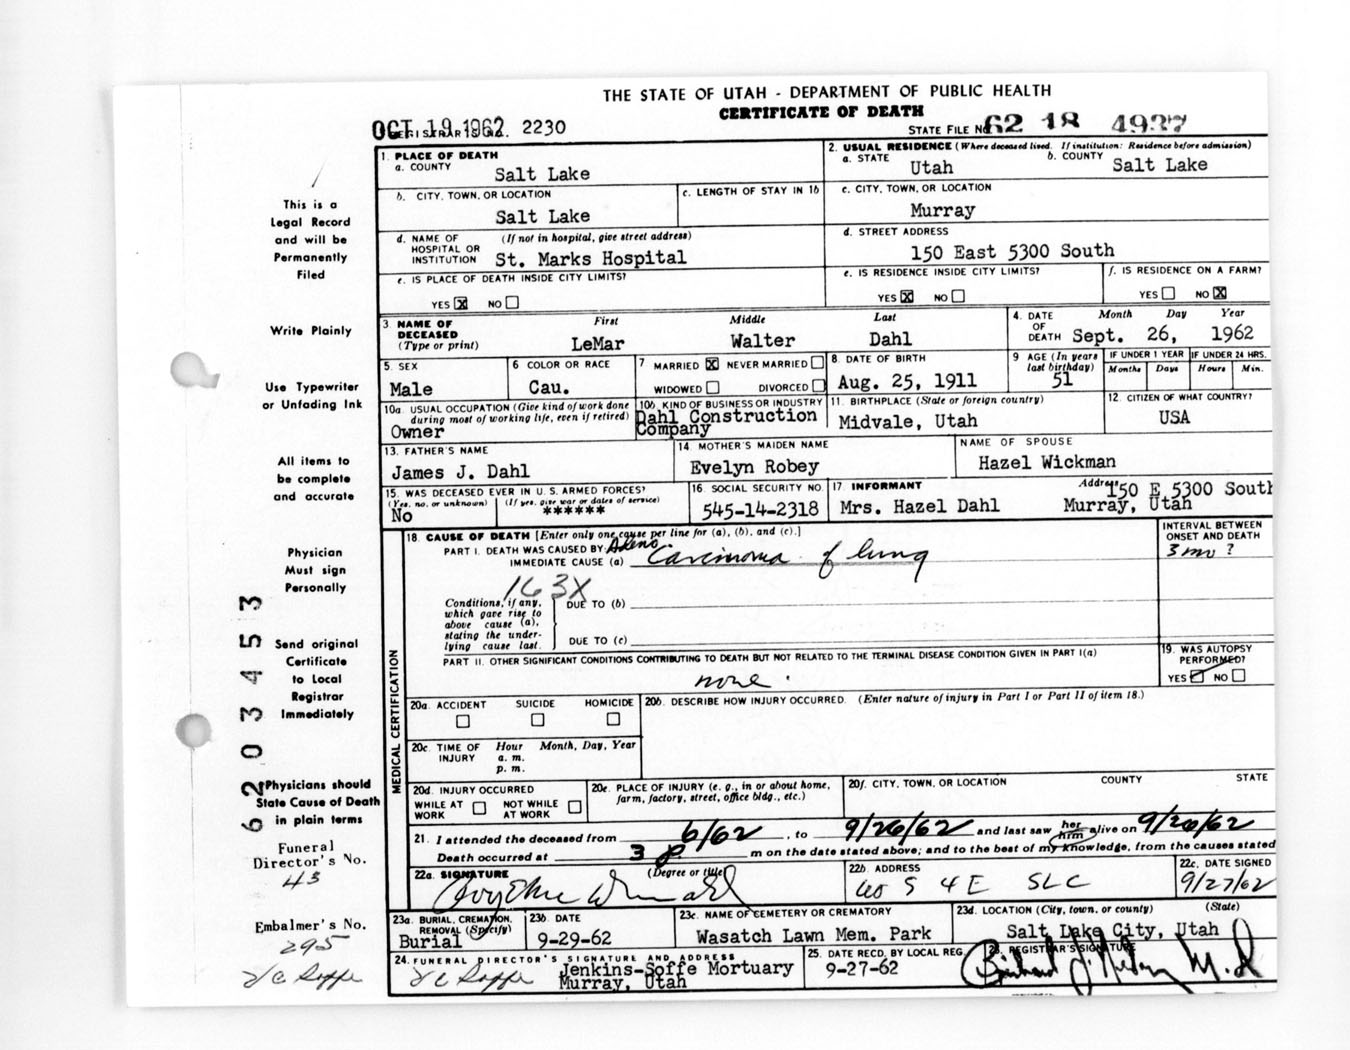 THE STATE OF UTAH - DEPARTMENT OF PUBLIC HEALTH
CERTIFICATE OF DEATH
OCT 19 1962 REGISTRAR'S NO. 2230
STATE FILE NO. 62 18 4937
1. PLACE OF DEATH
a. COUNTY Salt Lake
2. USUAL RESIDENCE (Where deceased lived. If institution: Residence before admission)
a. STATE Utah b. COUNTY Salt Lake
b. CITY, TOWN, OR LOCATION
Salt Lake
c. LENGTH OF STAY IN 1b
c. CITY, TOWN, OR LOCATION
Murray
d. NAME OF HOSPITAL OR INSTITUTION (If not in hospital, give street address)
St. Marks Hospital
d. STREET ADDRESS
150 East 5300 South
e. IS PLACE OF DEATH INSIDE CITY LIMITS?
YES X NO
e. IS RESIDENCE INSIDE CITY LIMITS?
YES X NO
f. IS RESIDENCE ON A FARM?
YES NO X
3. NAME OF DECEASED (Type or print)
First Middle Last
LeMar Walter Dahl
4. DATE OF DEATH Month Day Year
Sept. 26, 1962
5. SEX
Male
6 COLOR OR RACE
Cau.
7 MARRIED X NEVER MARRIED
WIDOWED DIVORCED
8. DATE OF BIRTH
Aug. 25, 1911
9 AGE (In years last birthday)
51
IF UNDER 1 YEAR
Months Days
IF UNDER 24 HRS.
Hours Min.
10a. USUAL OCCUPATION (Give kind of work done during most of working life, even if retired)
Owner
10b. KIND OF BUSINESS OR INDUSTRY
Dahl Construction
Company
11. BIRTHPLACE (State or foreign country)
Midvale, Utah
12. CITIZEN OF WHAT COUNTRY?
USA
13. FATHER'S NAME
James J. Dahl
14. MOTHER'S MAIDEN NAME
Evelyn Robey
NAME OF SPOUSE
Hazel Wickman
15. WAS DECEASED EVER IN U.S. ARMED FORCES?
(Yes, no, or unknown) (If yes, give war or dates of service)
No ******
16. SOCIAL SECURITY NO.
545-14-2318
17. INFORMANT Address
Mrs. Hazel Dahl 150 E 5300 South
Murray, Utah
18. CAUSE OF DEATH [Enter only one cause per line for (a), (b), and (c).]
PART I. DEATH WAS CAUSED BY:
IMMEDIATE CAUSE (a) Adeno Carcinoma of lung
INTERVAL BETWEEN ONSET AND DEATH
3 mo ?
163X
Conditions, if any, which gave rise to above cause (a), stating the underlying cause last.
DUE TO (b)
DUE TO (c)
PART II. OTHER SIGNIFICANT CONDITIONS CONTRIBUTING TO DEATH BUT NOT RELATED TO THE TERMINAL DISEASE CONDITION GIVEN IN PART I(a)
none.
19. WAS AUTOPSY PERFORMED?
YES NO
MEDICAL CERTIFICATION
20a. ACCIDENT SUICIDE HOMICIDE
20b. DESCRIBE HOW INJURY OCCURRED. (Enter nature of injury in Part I or Part II of item 18.)
20c. TIME OF INJURY Hour Month, Day, Year
a. m.
p. m.
20d. INJURY OCCURRED
WHILE AT WORK NOT WHILE AT WORK
20e. PLACE OF INJURY (e. g., in or about home, farm, factory, street, office bldg., etc.)
20f. CITY, TOWN, OR LOCATION COUNTY STATE
21. I attended the deceased from 6/62, to 9/26/62 and last saw her him alive on 9/26/62
Death occurred at 3 p m on the date stated above; and to the best of my knowledge, from the causes stated
22a. SIGNATURE (Degree or title)
22b. ADDRESS
60 S 4 E SLC
22c. DATE SIGNED
9/27/62
23a. BURIAL, CREMATION, REMOVAL (Specify)
Burial
23b. DATE
9-29-62
23c. NAME OF CEMETERY OR CREMATORY
Wasatch Lawn Mem. Park
23d. LOCATION (City, town, or county) (State)
Salt Lake City, Utah
24. FUNERAL DIRECTOR'S SIGNATURE AND ADDRESS
Jenkins-Soffe Mortuary
Murray, Utah
25. DATE RECD. BY LOCAL REG.
9-27-62
26. REGISTRAR'S SIGNATURE
M.D
This is a
Legal Record
and will be
Permanently
Filed
Write Plainly
Use Typewriter
or Unfading Ink
All items to
be complete
and accurate
Physician
Must sign
Personally
Send original
Certificate
to Local
Registrar
Immediately
Physicians should
State Cause of Death
in plain terms
Funeral
Director's No.
43
Embalmer's No.
295
62034453